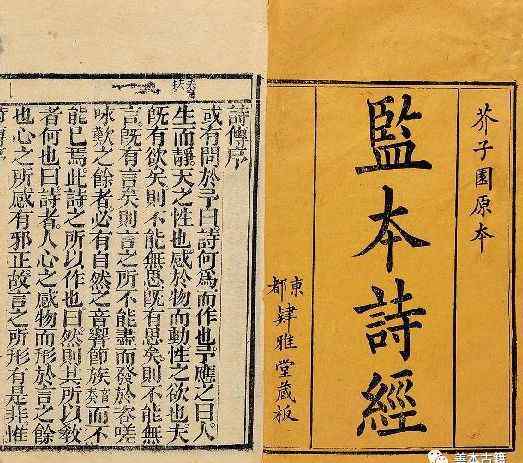 芥子園原本
監本詩經
東都
肄雅堂藏板
詩傳序
或有問於予曰詩何為而作也予應之曰人
生而靜天之性也感於物而動性之欲也夫
既有欲矣則不能無思既有思矣則不能無
言既有言矣則言之所不能盡而發於咨嗟
咏歎之餘者必有自然之音響節族而不
能已焉此詩之所以作也曰然則其所以教
者何也曰詩者人心之感物而形於言之餘
也心之所感有邪正故言之所形有是非惟
善本古籍